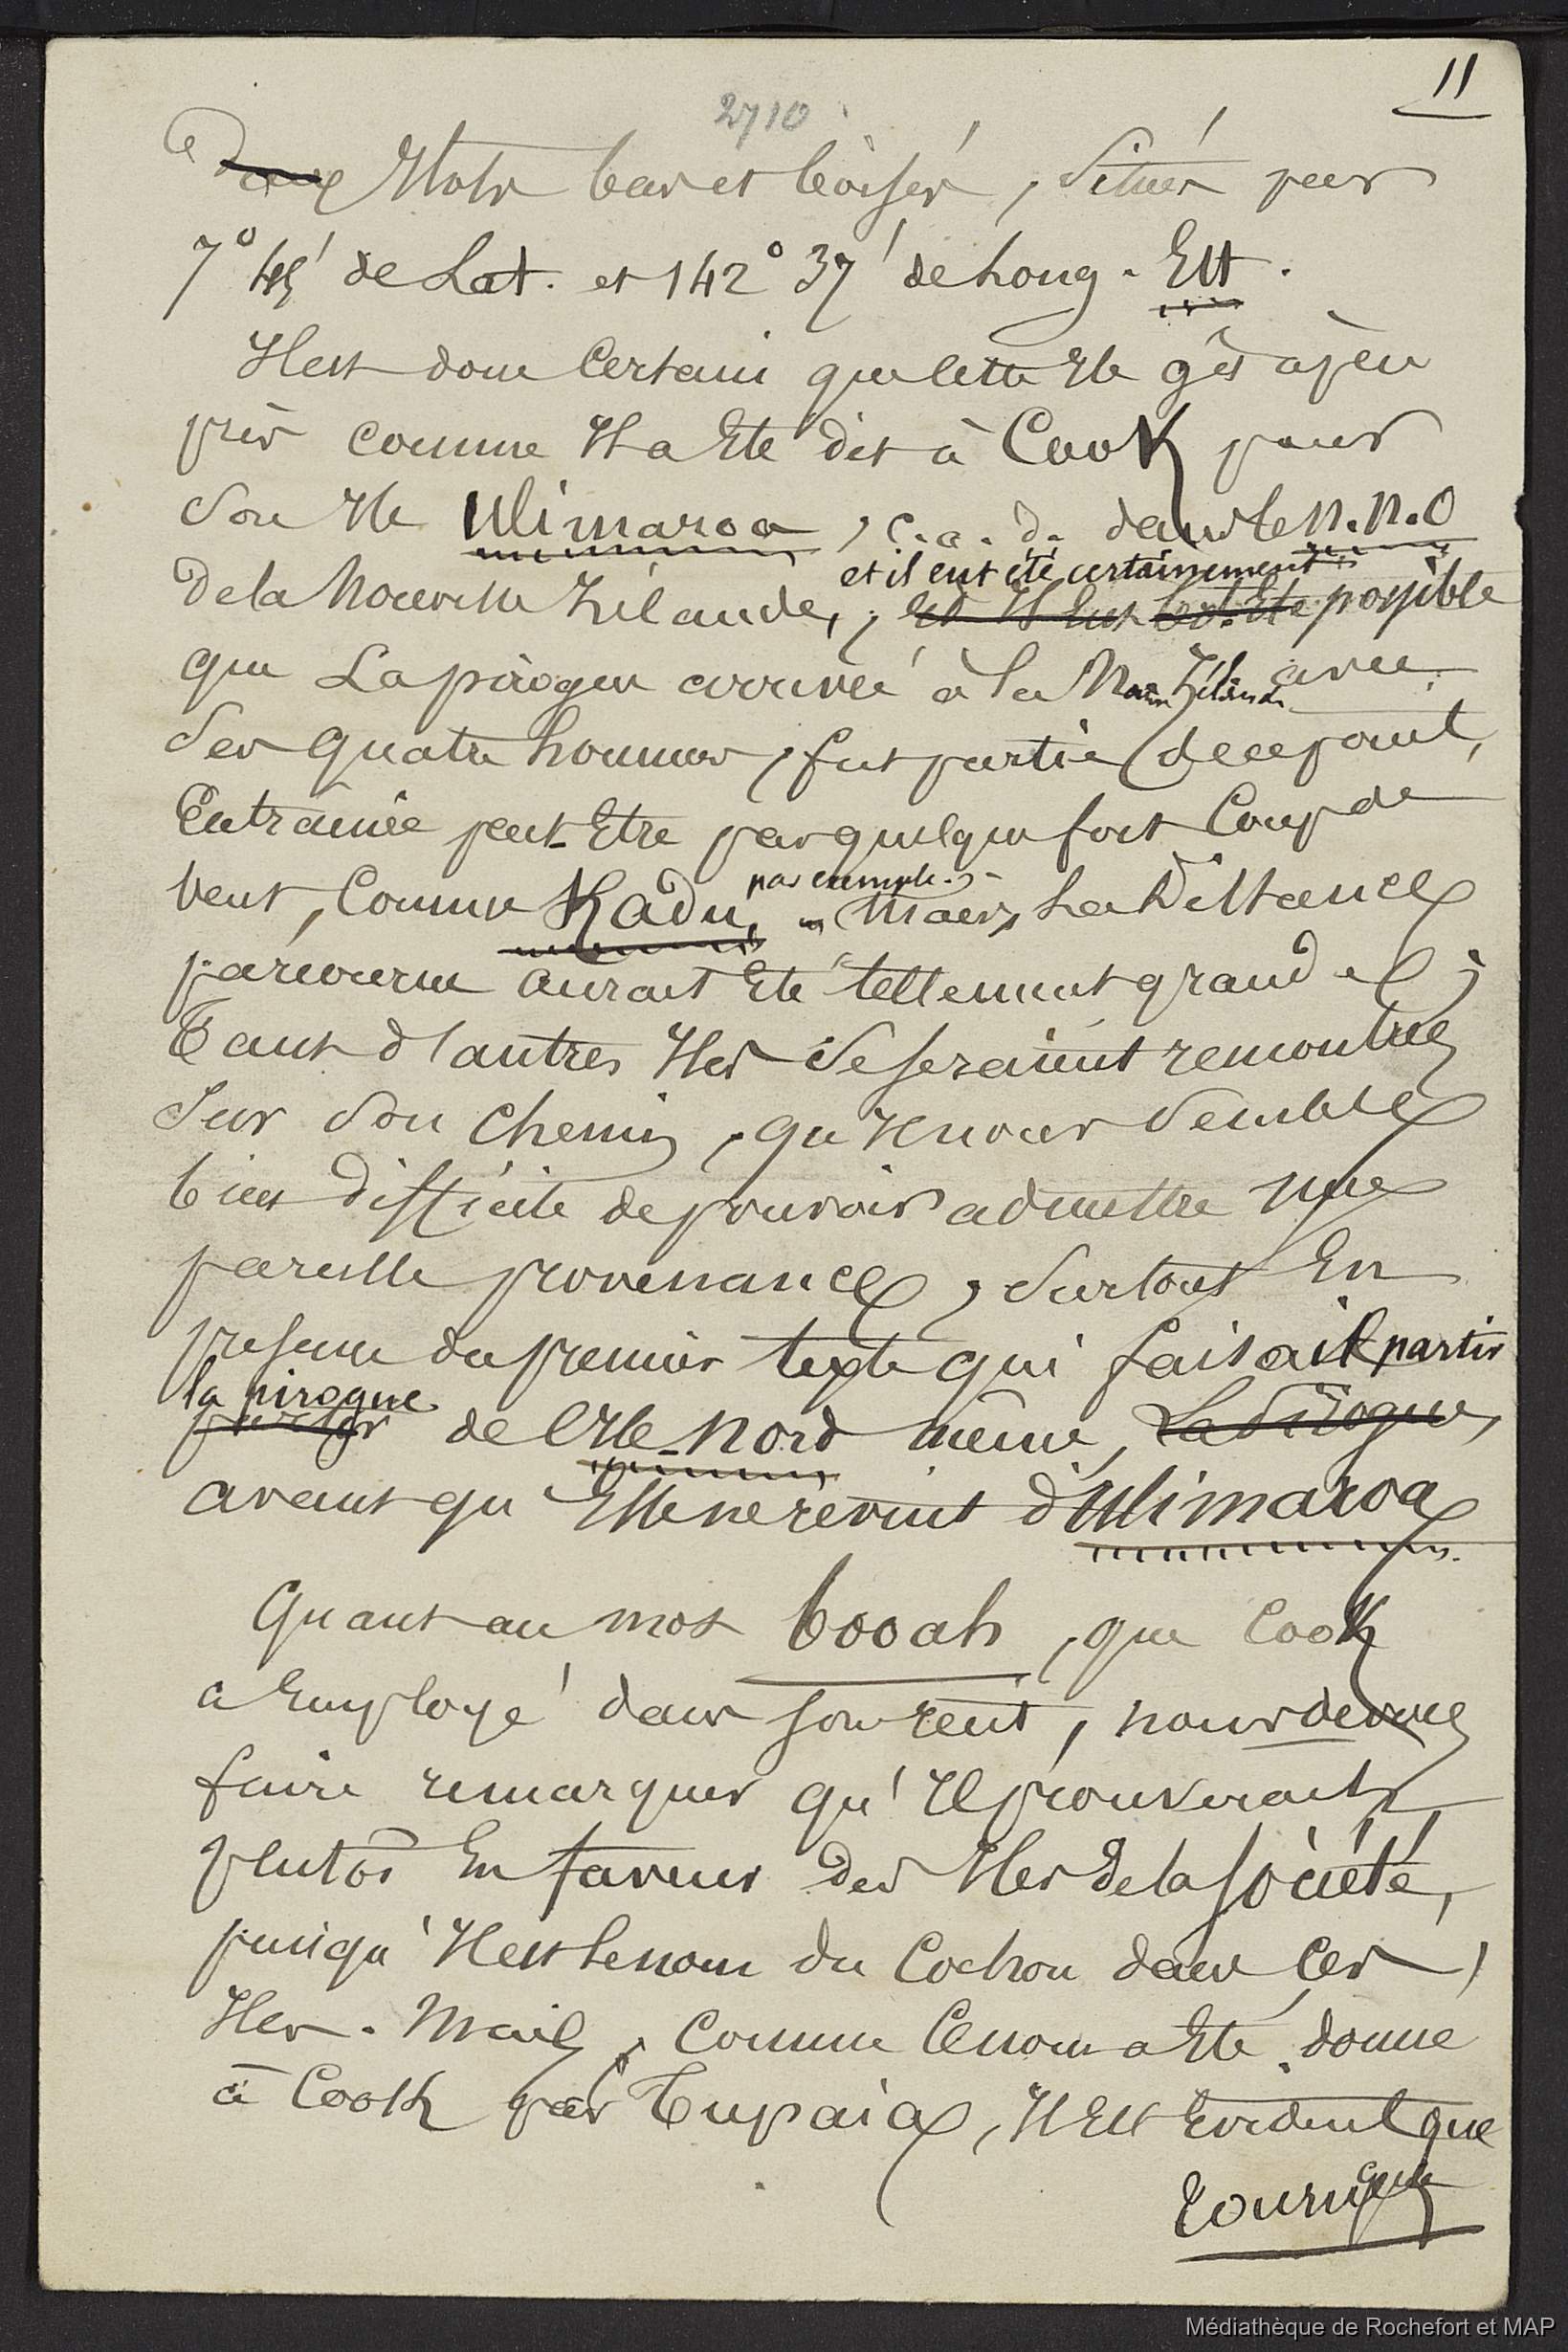 11
2710
Ilots bas et boisés, situés par
7° 45' de Lat. et 142° 37' de Long. Est.
Il est donc certain que cette Ile gît à peu
près comme Il a Eté dit à Cook pour
son Ile Ulimaroa, c.a.d. dans le N.N.O
et il eut été certainement
de la Nouvelle Zélande, ; et Il eut Eté possible
que La pirogue arrivée à la Nlle Zélande avec
ses quatre hommes, fut partie de ce point,
Entraînée peut-Etre par quelque fort Coup de
par exemple.
Vent, Comme Kadu, Mais, La Distance
parcourue aurait Eté tellement grande ;
Tant d'autres Iles se seraient rencontrées
Sur son chemin, qu'Il nous semble
bien difficile de pouvoir admettre une
pareille provenance, surtout En
présence du premier texte qui faisait partir
la pirogue
partir de l'Ile-Nord même, La Pirogue,
avant qu'Elle ne revint d'Ulimaroa
Quant au mot booah, que Cook
a Employé dans son récit, nous devons
faire remarquer qu'Il prouverait
plutôt En faveur des Iles de la Société,
puisqu'Il est le nom du Cochon dans Ces
Iles. Mais, Comme Ce nom a Eté donné
à Cook par Tupaia, Il Est Evident que
Tournez